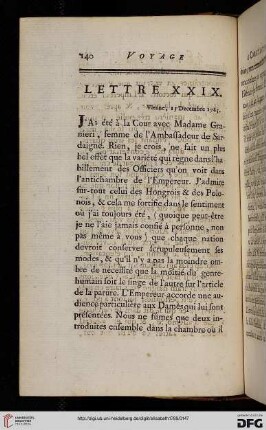 140 VOYAGE
LETTRE XXIX.
Vienne, 25 Décembre 1785.
J'AI été à la Cour avec Madame Granieri,
femme de l'Ambassadeur de Sardaigne.
Rien, je crois, ne fait un plus
bel effet que la variété qui règne dans l'habillement
des Officiers qu'on voit dans
l'antichambre de l'Empereur. J'admire
sur-tout celui des Hongrois & des Polonois,
& cela me fortifie dans le sentiment
où j'ai toujours été, (quoique peut-être
je ne l'aie jamais confié à personne, non
pas même à vous) que chaque nation
devroit conserver scrupuleusement ses
modes, & qu'il n'y a pas la moindre ombre
de nécessité que la moitié du genre-humain
soit le singe de l'autre sur l'article
de la parure. L'Empereur accorde une audience
particulière aux Dames qui lui sont
présentées. Nous ne fûmes que deux introduites
ensemble dans la chambre où il
http://digi.ub.uni-heidelberg.de/diglit
UNIVERSITÄTS-BIBLIOTHEK HEIDELBERG
DFG